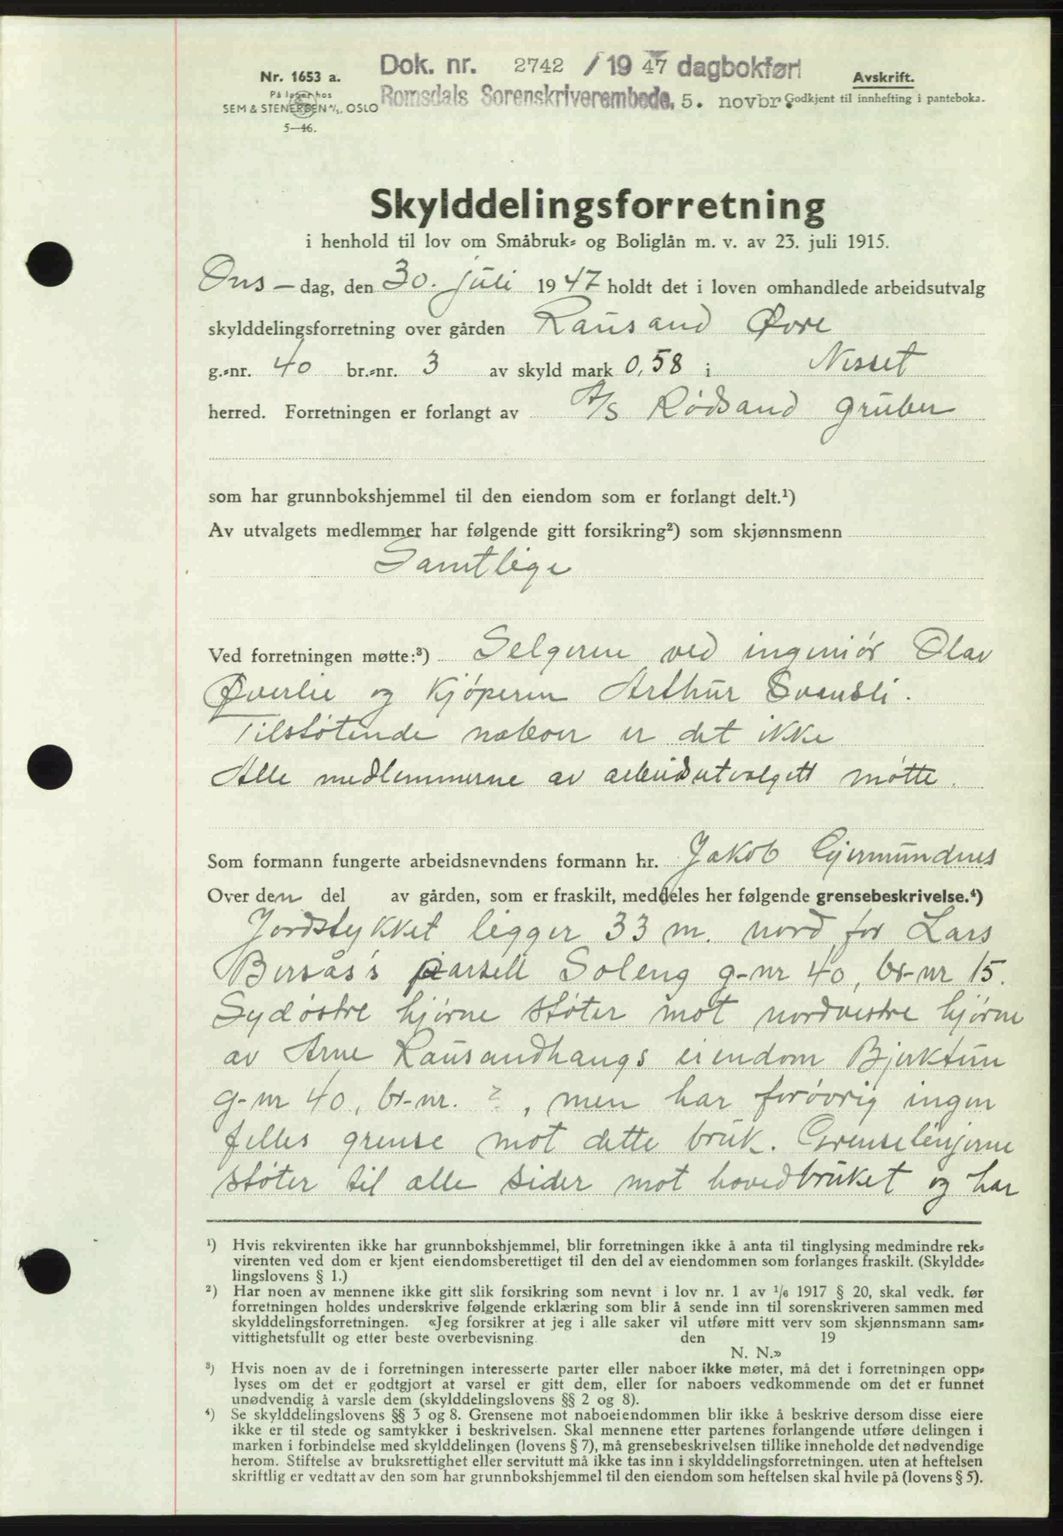 Dok. nr. 2742 /1947 dagbokført
Nr. 1653 a.
Avskrift.
På lager hos
Romsdals Sorenskriverembede, 5. novbr.
Godkjent til innhefting i panteboka.
SEM & STENERSEN A/S, OSLO
5—46.
Skylddelingsforretning
i henhold til lov om Småbruk- og Boliglån m. v. av 23. juli 1915.
Ons – dag, den 30. juli 1947 holdt det i loven omhandlede arbeidsutvalg
skylddelingsforretning over gården Rausand Øvre
g.-nr. 40 br.-nr. 3 av skyld mark 0,58 i Nesset
herred. Forretningen er forlangt av A/S Rødsand gruber
som har grunnbokshjemmel til den eiendom som er forlangt delt.¹)
Av utvalgets medlemmer har følgende gitt forsikring²) som skjønnsmenn
Samtlige
Ved forretningen møtte:³) Selgeren ved ingeniør Olav
Øverlie og kjøperen Arthur Svensli.
Tilstøtende naboer er det ikke
Alle medlemmerne av arbeidsutvalgett møtte.
Som formann fungerte arbeidsnevndens formann hr. Jakob Gjermundnes
Over den del av gården, som er fraskilt, meddeles her følgende grensebeskrivelse.⁴)
Jordstykket ligger 33 m. nord for Lars
Bersås's parsell Soleng g-nr 40, br-nr 15.
Sydøstre hjørne støter mot nordvestre hjørne
av Arne Rausandhaugs eiendom Bjerktun
g-nr 40, br-nr. ?, men har forøvrig ingen
felles grense mot dette bruk. Grenselinjerne
støter til alle sider mot hovedbruket og har
¹) Hvis rekvirenten ikke har grunnbokshjemmel, blir forretningen ikke å anta til tinglysing medmindre rek-
virenten ved dom er kjent eiendomsberettiget til den del av eiendommen som forlanges fraskilt. (Skyldde-
lingslovens § 1.)
²) Har noen av mennene ikke gitt slik forsikring som nevnt i lov nr. 1 av 1/6 1917 § 20, skal vedk. før
forretningen holdes underskrive følgende erklæring som blir å sende inn til sorenskriveren sammen med
skylddelingsforretningen. «Jeg forsikrer at jeg i alle saker vil utføre mitt verv som skjønnsmann sam-
vittighetsfullt og etter beste overbevisning den 19
N. N.»
³) Hvis noen av de i forretningen interesserte parter eller naboer ikke møter, må det i forretningen opp-
lyses om det er godtgjort at varsel er gitt dem, eller for naboers vedkommende om det er funnet
unødvendig å varsle dem (skylddelingslovens §§ 2 og 8).
⁴) Se skylddelingslovens §§ 3 og 8. Grensene mot naboeiendommen blir ikke å beskrive dersom disse eiere
ikke er til stede og samtykker i beskrivelsen. Skal mennene etter partenes forlangende utføre delingen i
marken i forbindelse med skylddelingen (lovens § 7), må grensebeskrivelsen tillike inneholde det nødvendige
herom. Stiftelse av bruksrettighet eller servitutt må ikke tas inn i skylddelingsforretningen. uten at heftelsen
skriftlig er vedtatt av den som har grunnbokshjemmel til den eiendom som heftelsen skal hvile på (lovens § 5).